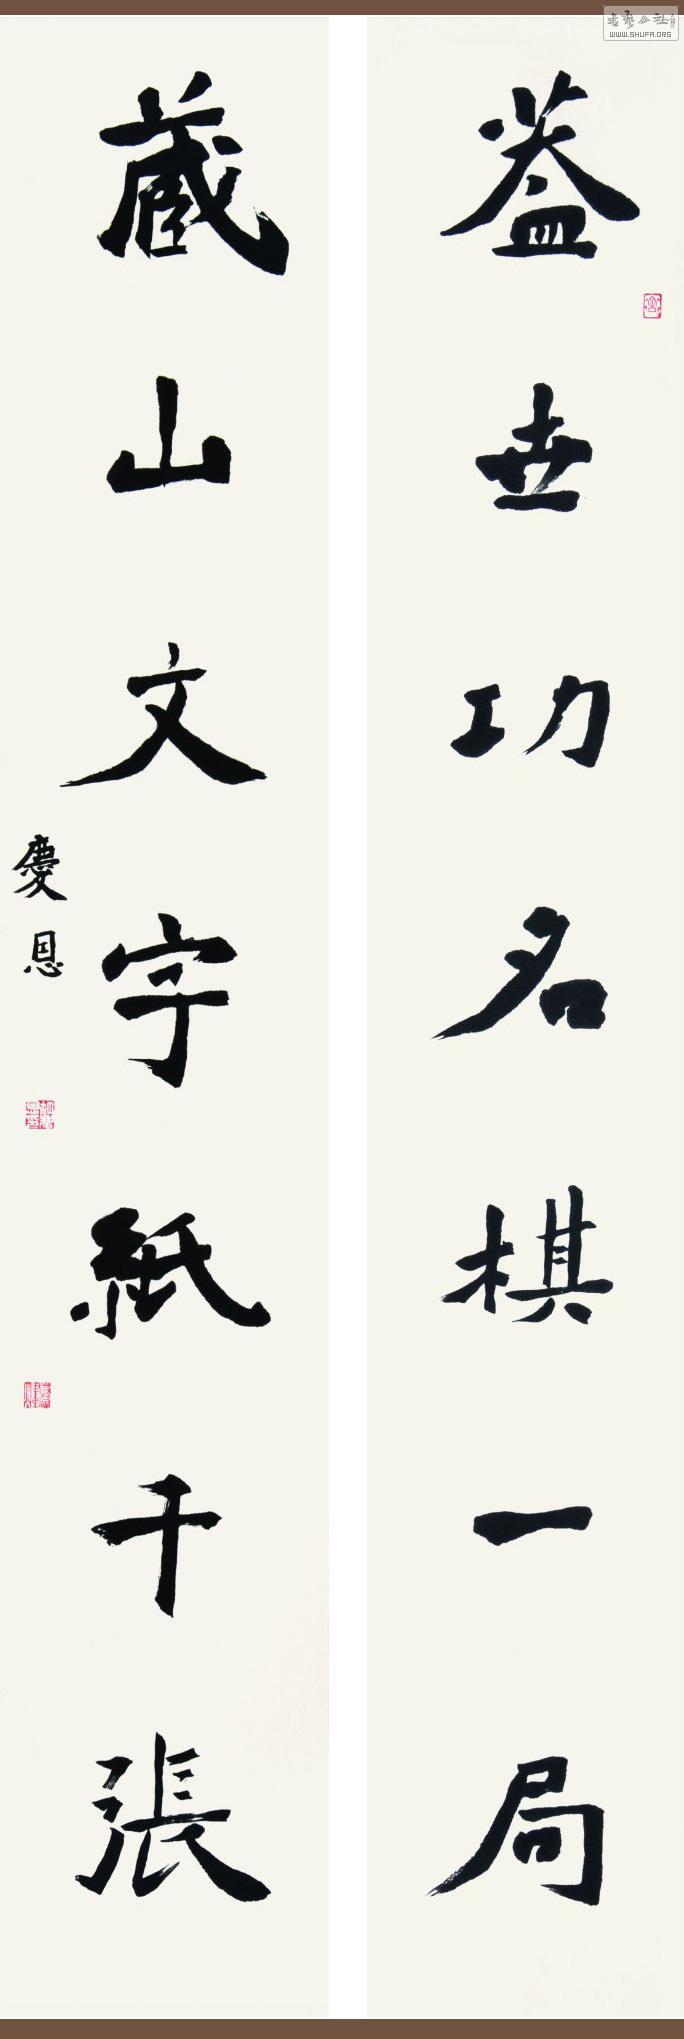 蓋世功名棋一局
藏山文字紙千張
慶恩
WWW.SHUFA.ORG